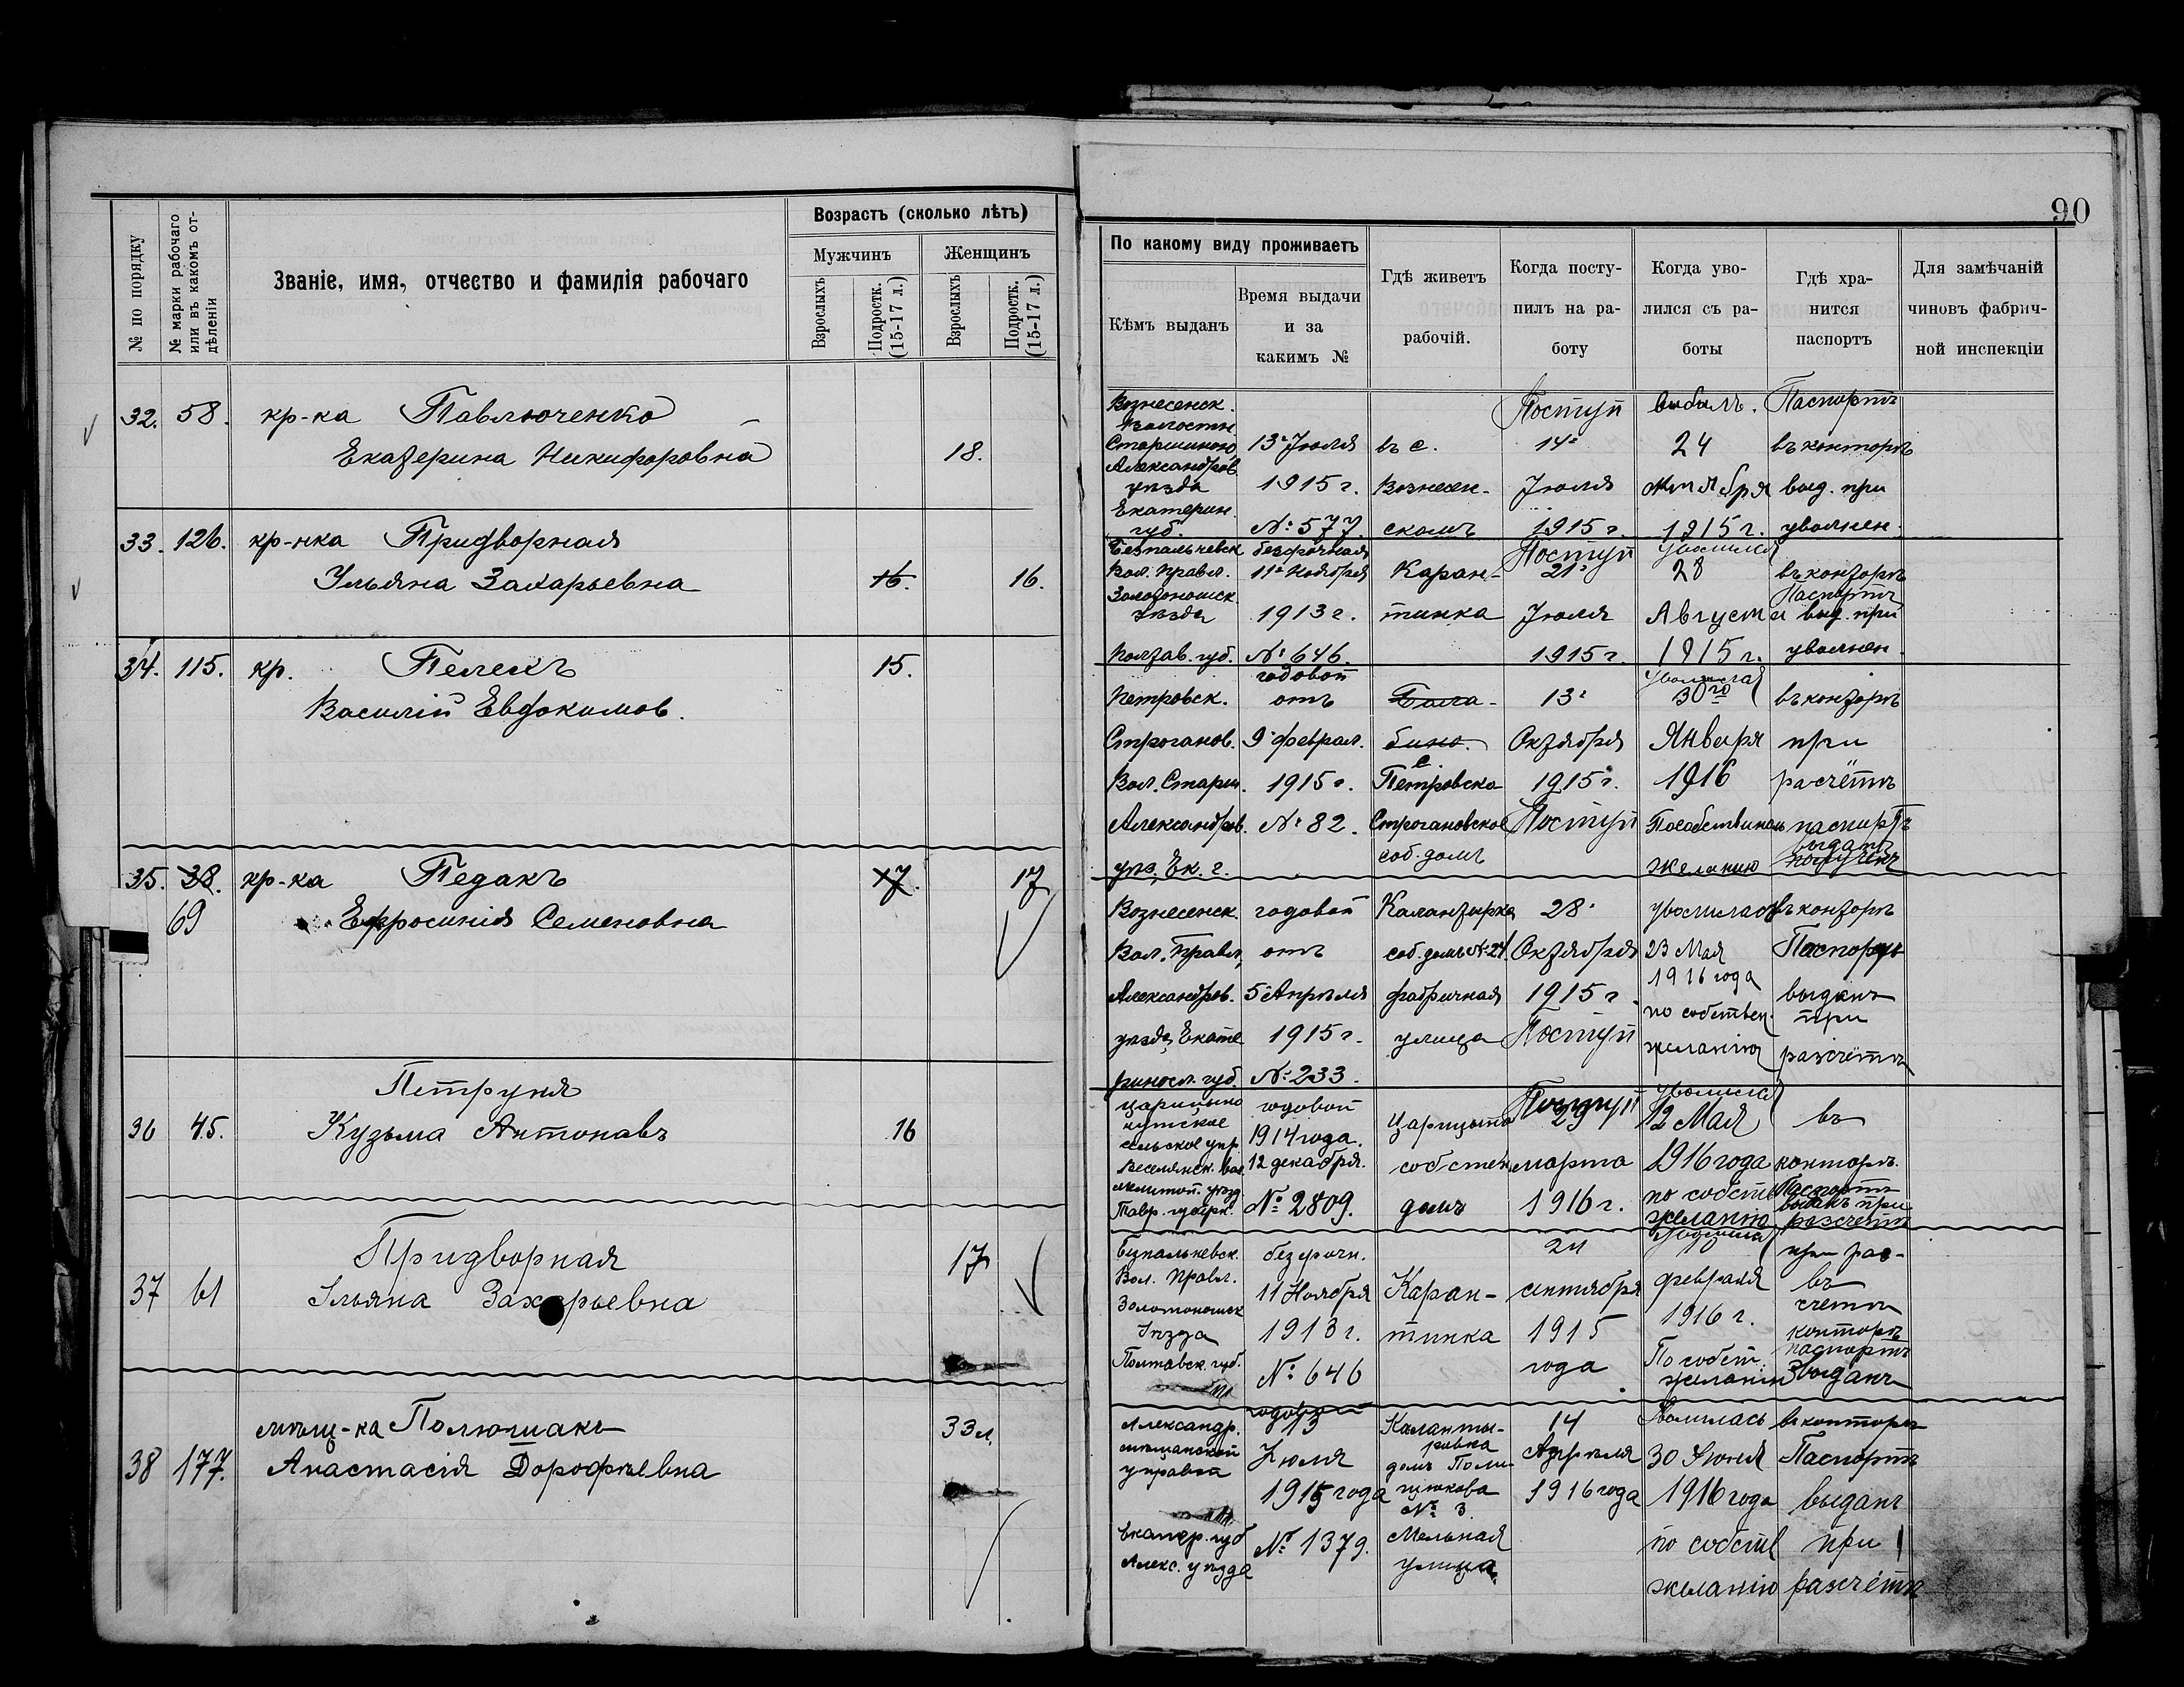 90
№ по порядку
№ марки рабочаго или въ какомъ отдѣленіи
Званіе, имя, отчество и фамилія рабочаго
Возрастъ (сколько лѣтъ)
Мужчинъ
Женщинъ
Взрослыхъ
Подростк. (15-17 л.)
Взрослыхъ
Подростк. (15-17 л.)
По какому виду проживаетъ
Кѣмъ выданъ
Время выдачи
и за
какимъ №
Гдѣ живетъ
рабочій.
Когда посту-
пилъ на ра-
боту
Когда уво-
лился съ ра-
боты
Гдѣ хра-
нится
паспортъ
Для замѣчаній
чиновъ фабрич-
ной инспекціи
32. 58. кр-ка Павлюченко
Екатерина Никифоровна 18.
Вознесенск.
Волостн
Старшиною
Александров
уѣзда
Екатерин.
губ.
13 Іюля
1915 г.
№ 577.
въ с.
Вознесен-
скомъ
Поступ
14
Іюля
1915 г.
выбылъ.
24
октября
1915 г.
Паспортъ
въ конторѣ
выд. при
уволнен.
33. 126. кр-нка Придворная
Ульяна Захарьевна 16. 16.
Вол. Правл.
Золотоношск.
Уѣзда
Полтав. губ.
безсрочная
11 Ноября
1913 г.
№ 646.
Каран-
тинка
Поступ
21
Іюля
1915 г.
Уволился
28
Августа
1915 г.
въ конторѣ
Паспортъ
выд. при
уволнен.
34. 115. кр. Пелехъ 15.
Василій Евдокимов.
Петровск.
Строганов.
Вол. Старш.
Александров.
уѣз. Ек. г.
годовой
отъ
9 феврал.
1915 г.
№ 82.
Бала-
бино.
с.
Петровско
Строгановское
соб. домъ
13
Октября
1915 г.
Поступ
Уволился
30го
Января
1916
По собственному
желанию
въ конторѣ
при
расчётѣ
паспортъ
выданъ
получен
35. 38. кр-ка Педакъ 17. 17
69 Ефросинія Семеновна
Вознесенск.
Вол. Правл,
Александров.
уѣзда, Екате
риносл. губ.
годовой
отъ
5 Апрѣля
1915 г.
№ 233.
Калантырка
соб. домъ № 24.
фабричная
улица
28
Октября
1915 г.
Поступ
уволилась
23 Мая
1916 года
по собствен.
желанію
въ конторѣ
Паспортъ
выданъ
при
разсчетѣ
Петруня
36 45. Кузьма Антонавъ 16
сельское упр.
Веселянск. вол.
Мелитоп. уѣзд.
Тавр. губерн.
годовой
1914 года.
12 декабря.
№ 2809.
Царицыно
собствен
домъ
Поступ
29
марта
1916 г.
Уволился
12 Мая
1916 года
по собств
желанію
въ
конторѣ.
Паспортъ
выданъ при
разсчетѣ
Придворная 17
37 61 Ульяна Захарьевна
Вол. Правл.
Золотоношск
Уѣзда
Полтавск. губ.
безсрочн.
11 Ноября
1913 г.
№ 646
Каран-
тинка
24
сентября
1915
года
Уволилась
10
февраля
1916 г.
По собст.
желанію
при раз-
въ
счетѣ
конторѣ
паспортъ
выданъ
мѣщ-ка Полюшакъ 33 л.
38 177. Анастасія Дорофѣевна
Александр.
мѣщанской
управы
Екатер. губ
Алекс. уѣзда
годовой
13
Іюля
1915 года
№ 1379.
Каланты-
ровка
домъ
№ 3.
Мельная
улица.
14
Апрѣля
1916 года
Уволилась
30 Іюня
1916 года
по собств
желанію
въ конторѣ
Паспортъ
выданъ
при
разсчётѣ